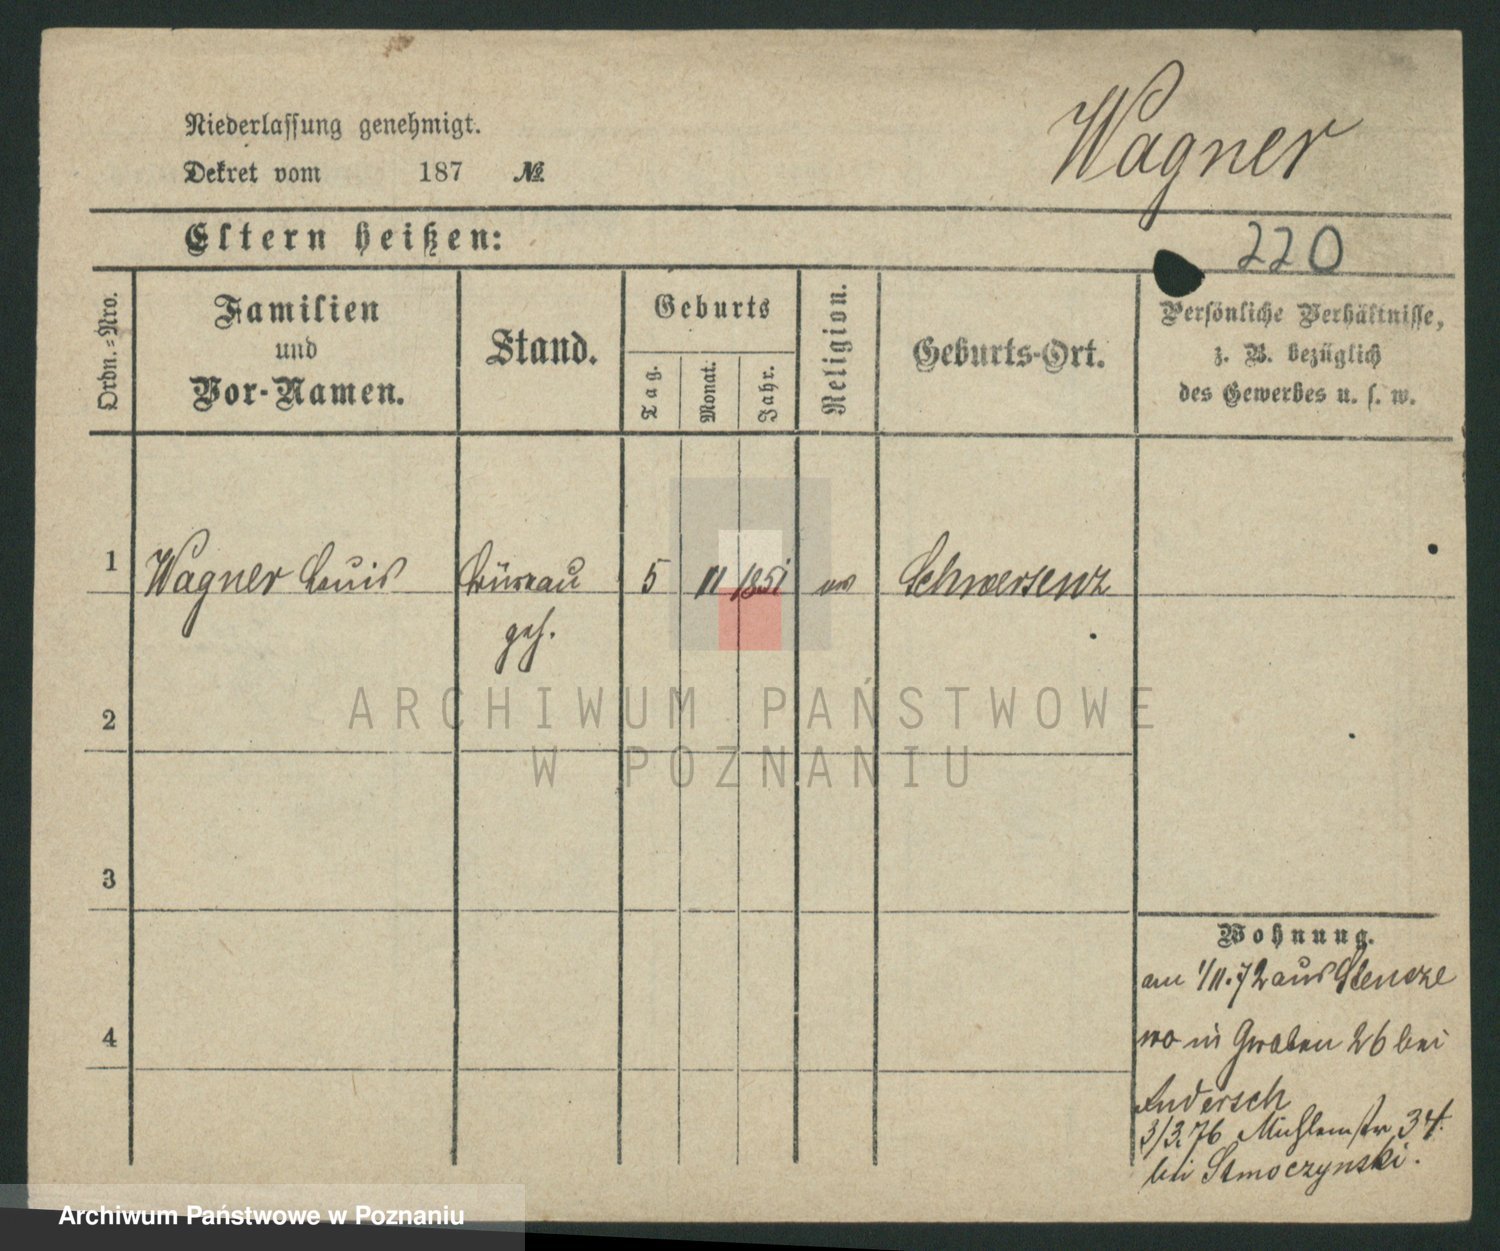 Niederlassung genehmigt.
Dekret vom 187 №
Wagner
Eltern heißen:
220
Ordn.-Nro.
Familien und Vor-Namen.
Stand.
Geburts
Tag.
Monat.
Jahr.
Religion.
Geburts-Ort.
Persönliche Verhältnisse,
z. B. bezüglich
des Gewerbes u. s. w.
1 Wagner Louis Büreau 5 11 1851 Schwersenz
geh.
2
3
4
ARCHIWUM PAŃSTWOWE
W POZNANIU
Wohnung.
am 1/11.72 aus
in Graben 26 bei
Andersch
3/3.76 Mühlenstr 34.
bei
Archiwum Państwowe w Poznaniu